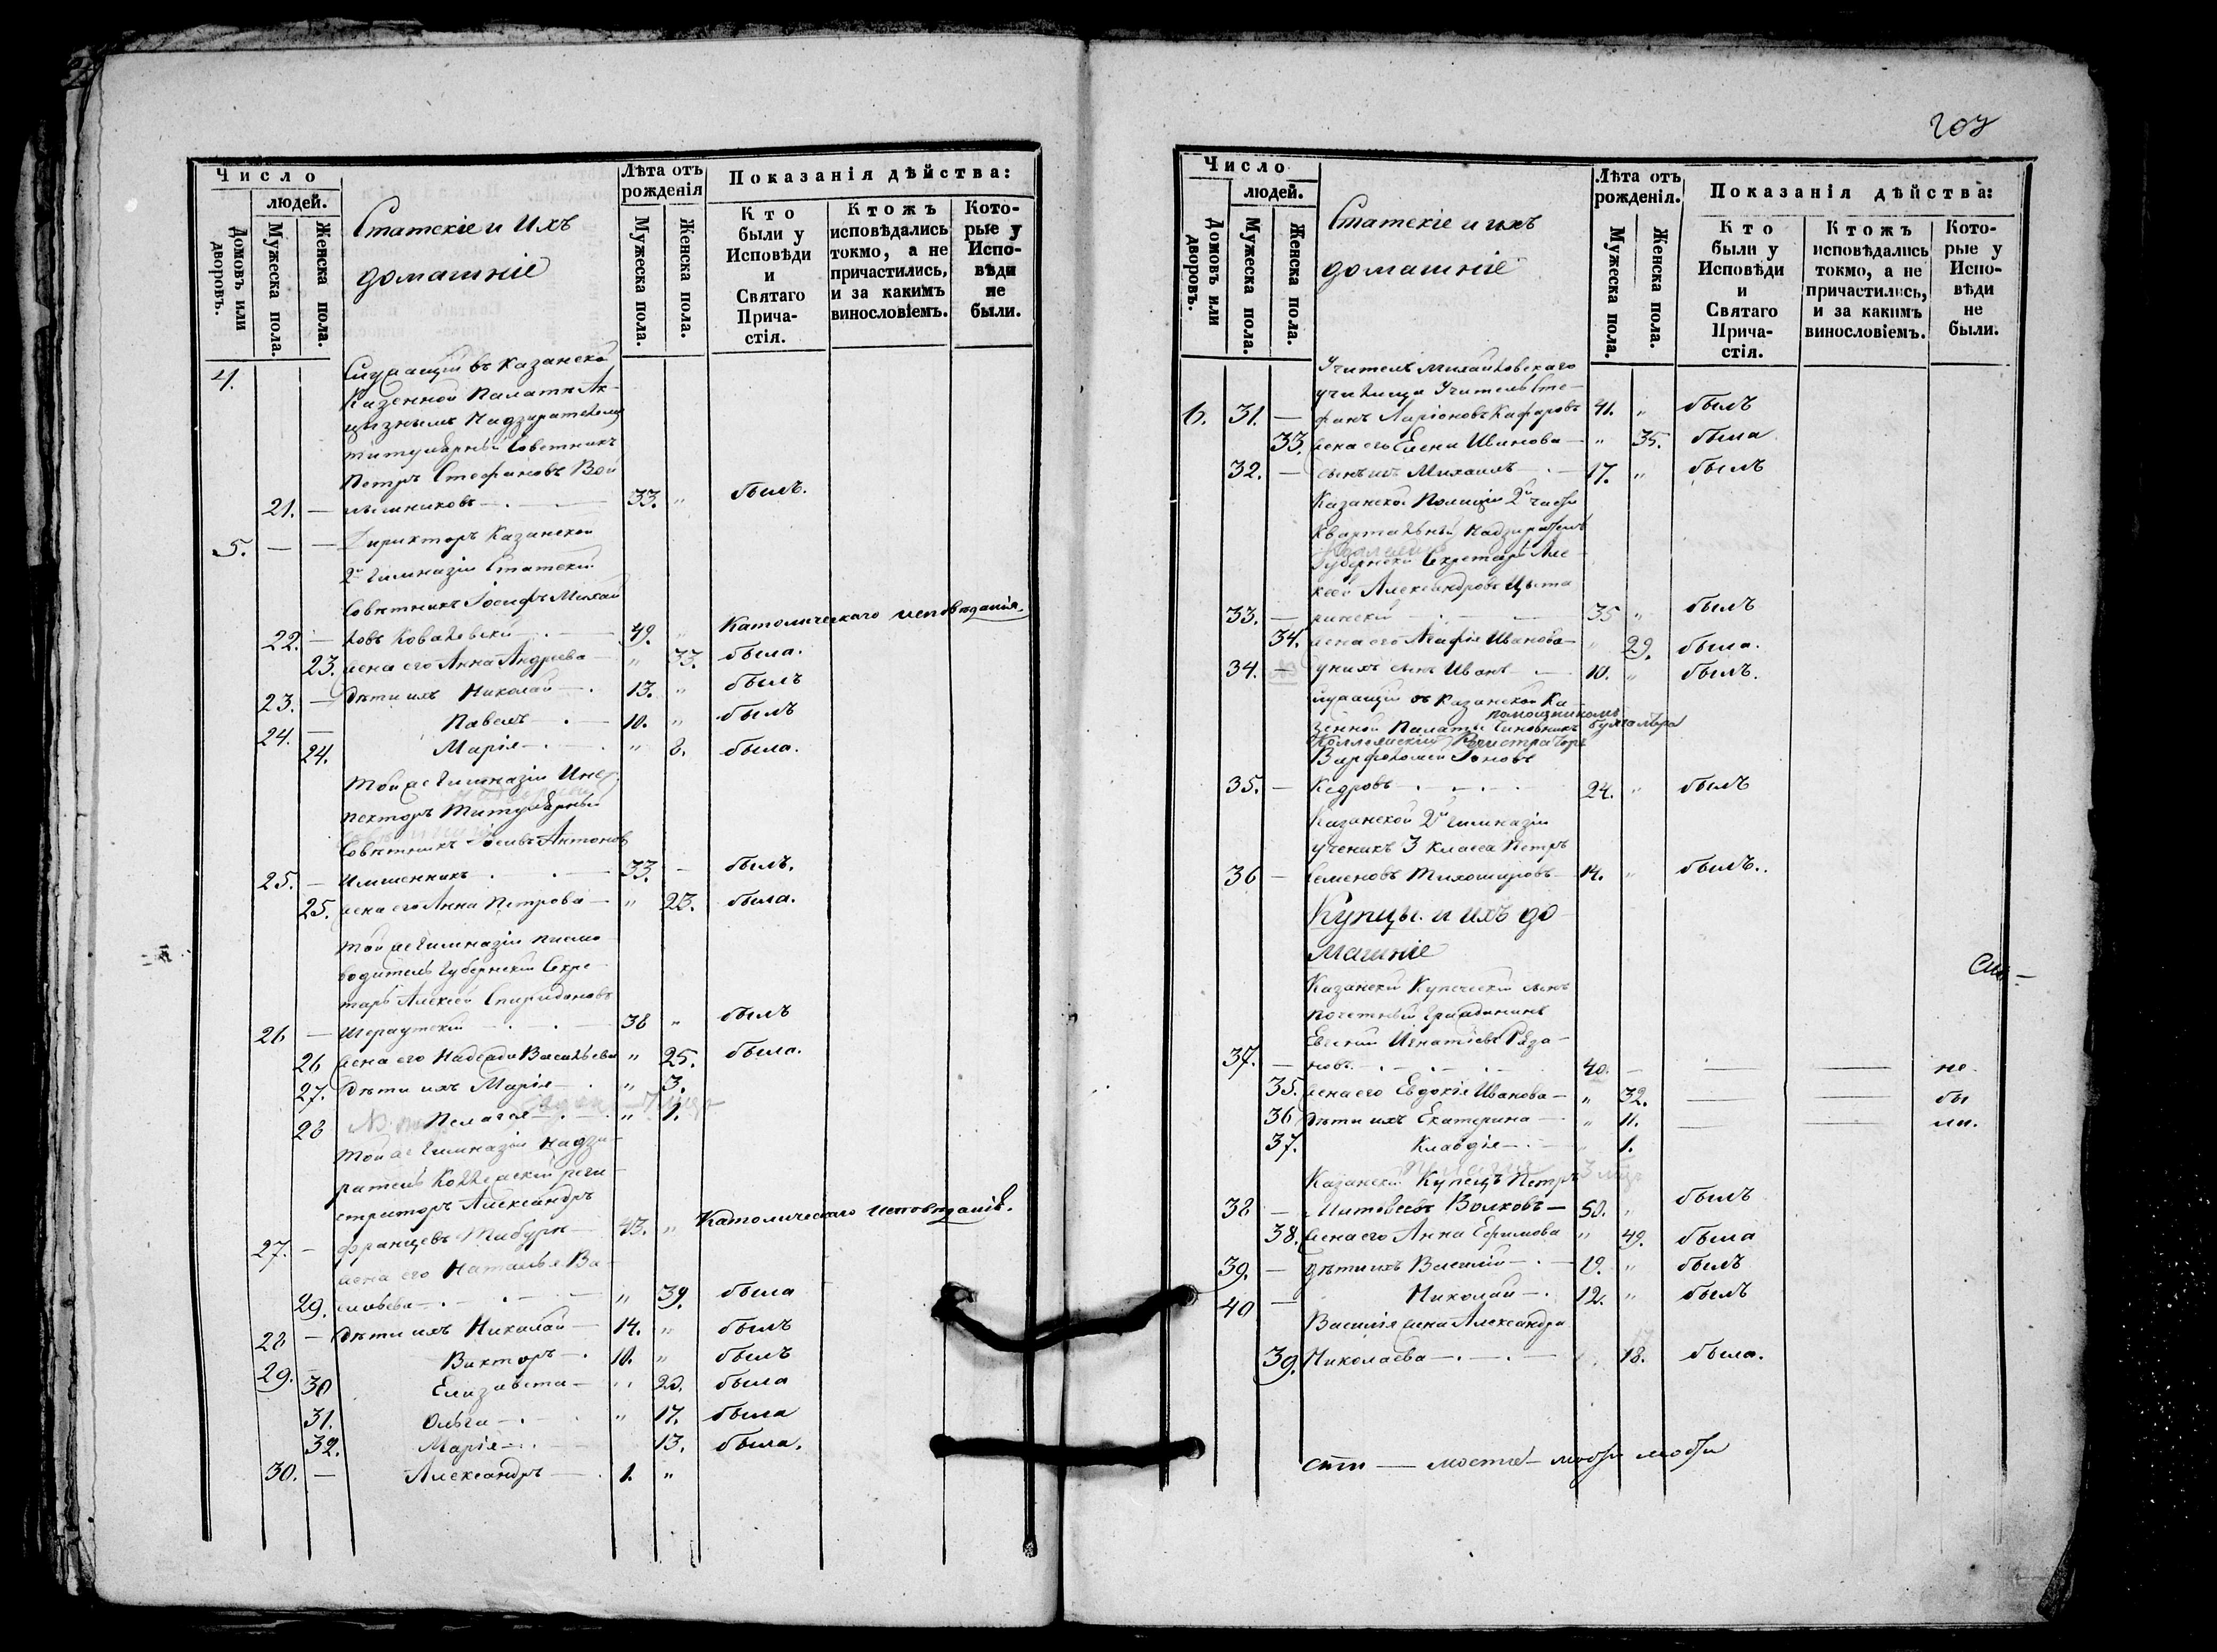 Число
людей.
Домовъ или дворовъ.
Мужеска пола.
Женска пола.
Статскіе и Ихъ
домашніе
Лѣта отъ
рожденія
Мужеска пола.
Женска пола.
Показанія дѣйства:
Кто
были у
Исповѣди
и
Святаго
Прича-
стія.
Ктожъ
исповѣдались
токмо, а не
причастились,
и за какимъ
винословіемъ.
Кото-
рые у
Испо-
вѣди
не
были.
4. Служащій въ Казанской
Казенной Палатѣ Ак-
цизнымъ Надзирателемъ
титулярный Совѣтникъ
Петръ Стефановъ Вой
21. — 33. " былъ.
5. — — Дирикторъ Казанской
2й Гимназіи Статскій
Совѣтникъ Іосифъ Михай
22. — ловъ Ковалевскій — 49. " Католическаго исповѣданія.
23. жена его Анна Андреева — " 33. была.
23. — Дѣти ихъ Николай — 13. " былъ
24. — Павелъ — 10. " былъ
24. Марія — " 8. была.
Той же Гимназіи Инс-
пекторъ Титулярный
Совѣтникъ Антонов
25. — 33. — былъ.
25. жена его Анна Петрова — " 23. была.
Той же Гимназіи письмо
водитель Губернскій Секре-
тарь Алексей Спиридоновъ
26 — 38 " былъ
26 жена его Надежда Васильева " 25. была.
27. Дѣти ихъ Марія — " 3.
28 Пелагея — " 1.
Той же Гимназіи Надзи-
ратель Коллежскій реги-
страторъ Александръ
27. — Францевъ — 43. " Католическаго исповѣданія.
жена его Наталья Ва-
29. сильева — " 39. была
28 — Дѣти ихъ Николай — 14. " былъ
29. Викторъ — 10. " былъ
30 Елизавета — " 20. была
31. Ольга — " 17. была
32. Марія — 13. была.
30. — Александръ — 1. "
207
Число
людей.
Домовъ или дворовъ.
Мужеска пола.
Женска пола.
Статскіе и ихъ
домашніе
Лѣта отъ
рожденія.
Мужеска пола.
Женска пола.
Показанія дѣйства:
Кто
были у
Исповѣди
и
Святаго
Прича-
стія.
Ктожъ
исповѣдались
токмо, а не
причастились,
и за какимъ
винословіемъ.
Кото-
рые у
Испо-
вѣди
не
были.
Учитель Михайловскаго
училища Учитель Сте-
6. 31. — фанъ Ларіоновъ Кафаровъ 41. " былъ
33. жена его Елена Иванова — " 35. была
32. — сынъ ихъ Михаилъ — 17. " былъ
Казанской Полиціи 2й части
Квартальный Надзиратель
Губернскій Секретарь Але
ксей Александровъ Цвета
33. — ринскій — 35 " былъ
34. жена его Агафія Иванова — " 29. была.
34. — у нихъ сынъ Иванъ — 10. " былъ.
Служащій въ Казанской Ка-
помощникомъ
зенной Палаты Чиновникъ бухгалтера
Коллежскій Регистраторъ
Варфоломей Іоновъ
35. — Кедровъ — 24. " былъ
Казанской 2й Гимназіи
ученикъ 3 класса Петръ
36 — Семеновъ Тихомировъ — 14. " былъ.
Купцы и ихъ до
машніе
Казанскій Купеческій сынъ
почетный Гражданинъ
Евгений Игнатіевъ Ряза-
37. — новъ — 40. — — — не
35. жена его Евдокія Иванова — " 32. — — бы
36 Дѣти ихъ Екатерина — " 11. — — ли.
37. Клавдія — 1.
Казанскій Купецъ Петръ
38 — Матвеевъ Волковъ — 50. " былъ
38. жена его Анна Ефимова " 49. была
39. — Дѣти ихъ Василій — 19. " былъ
40 — Николай — 12. " былъ
Василія жена Александра
39. Николаева — 18. была.